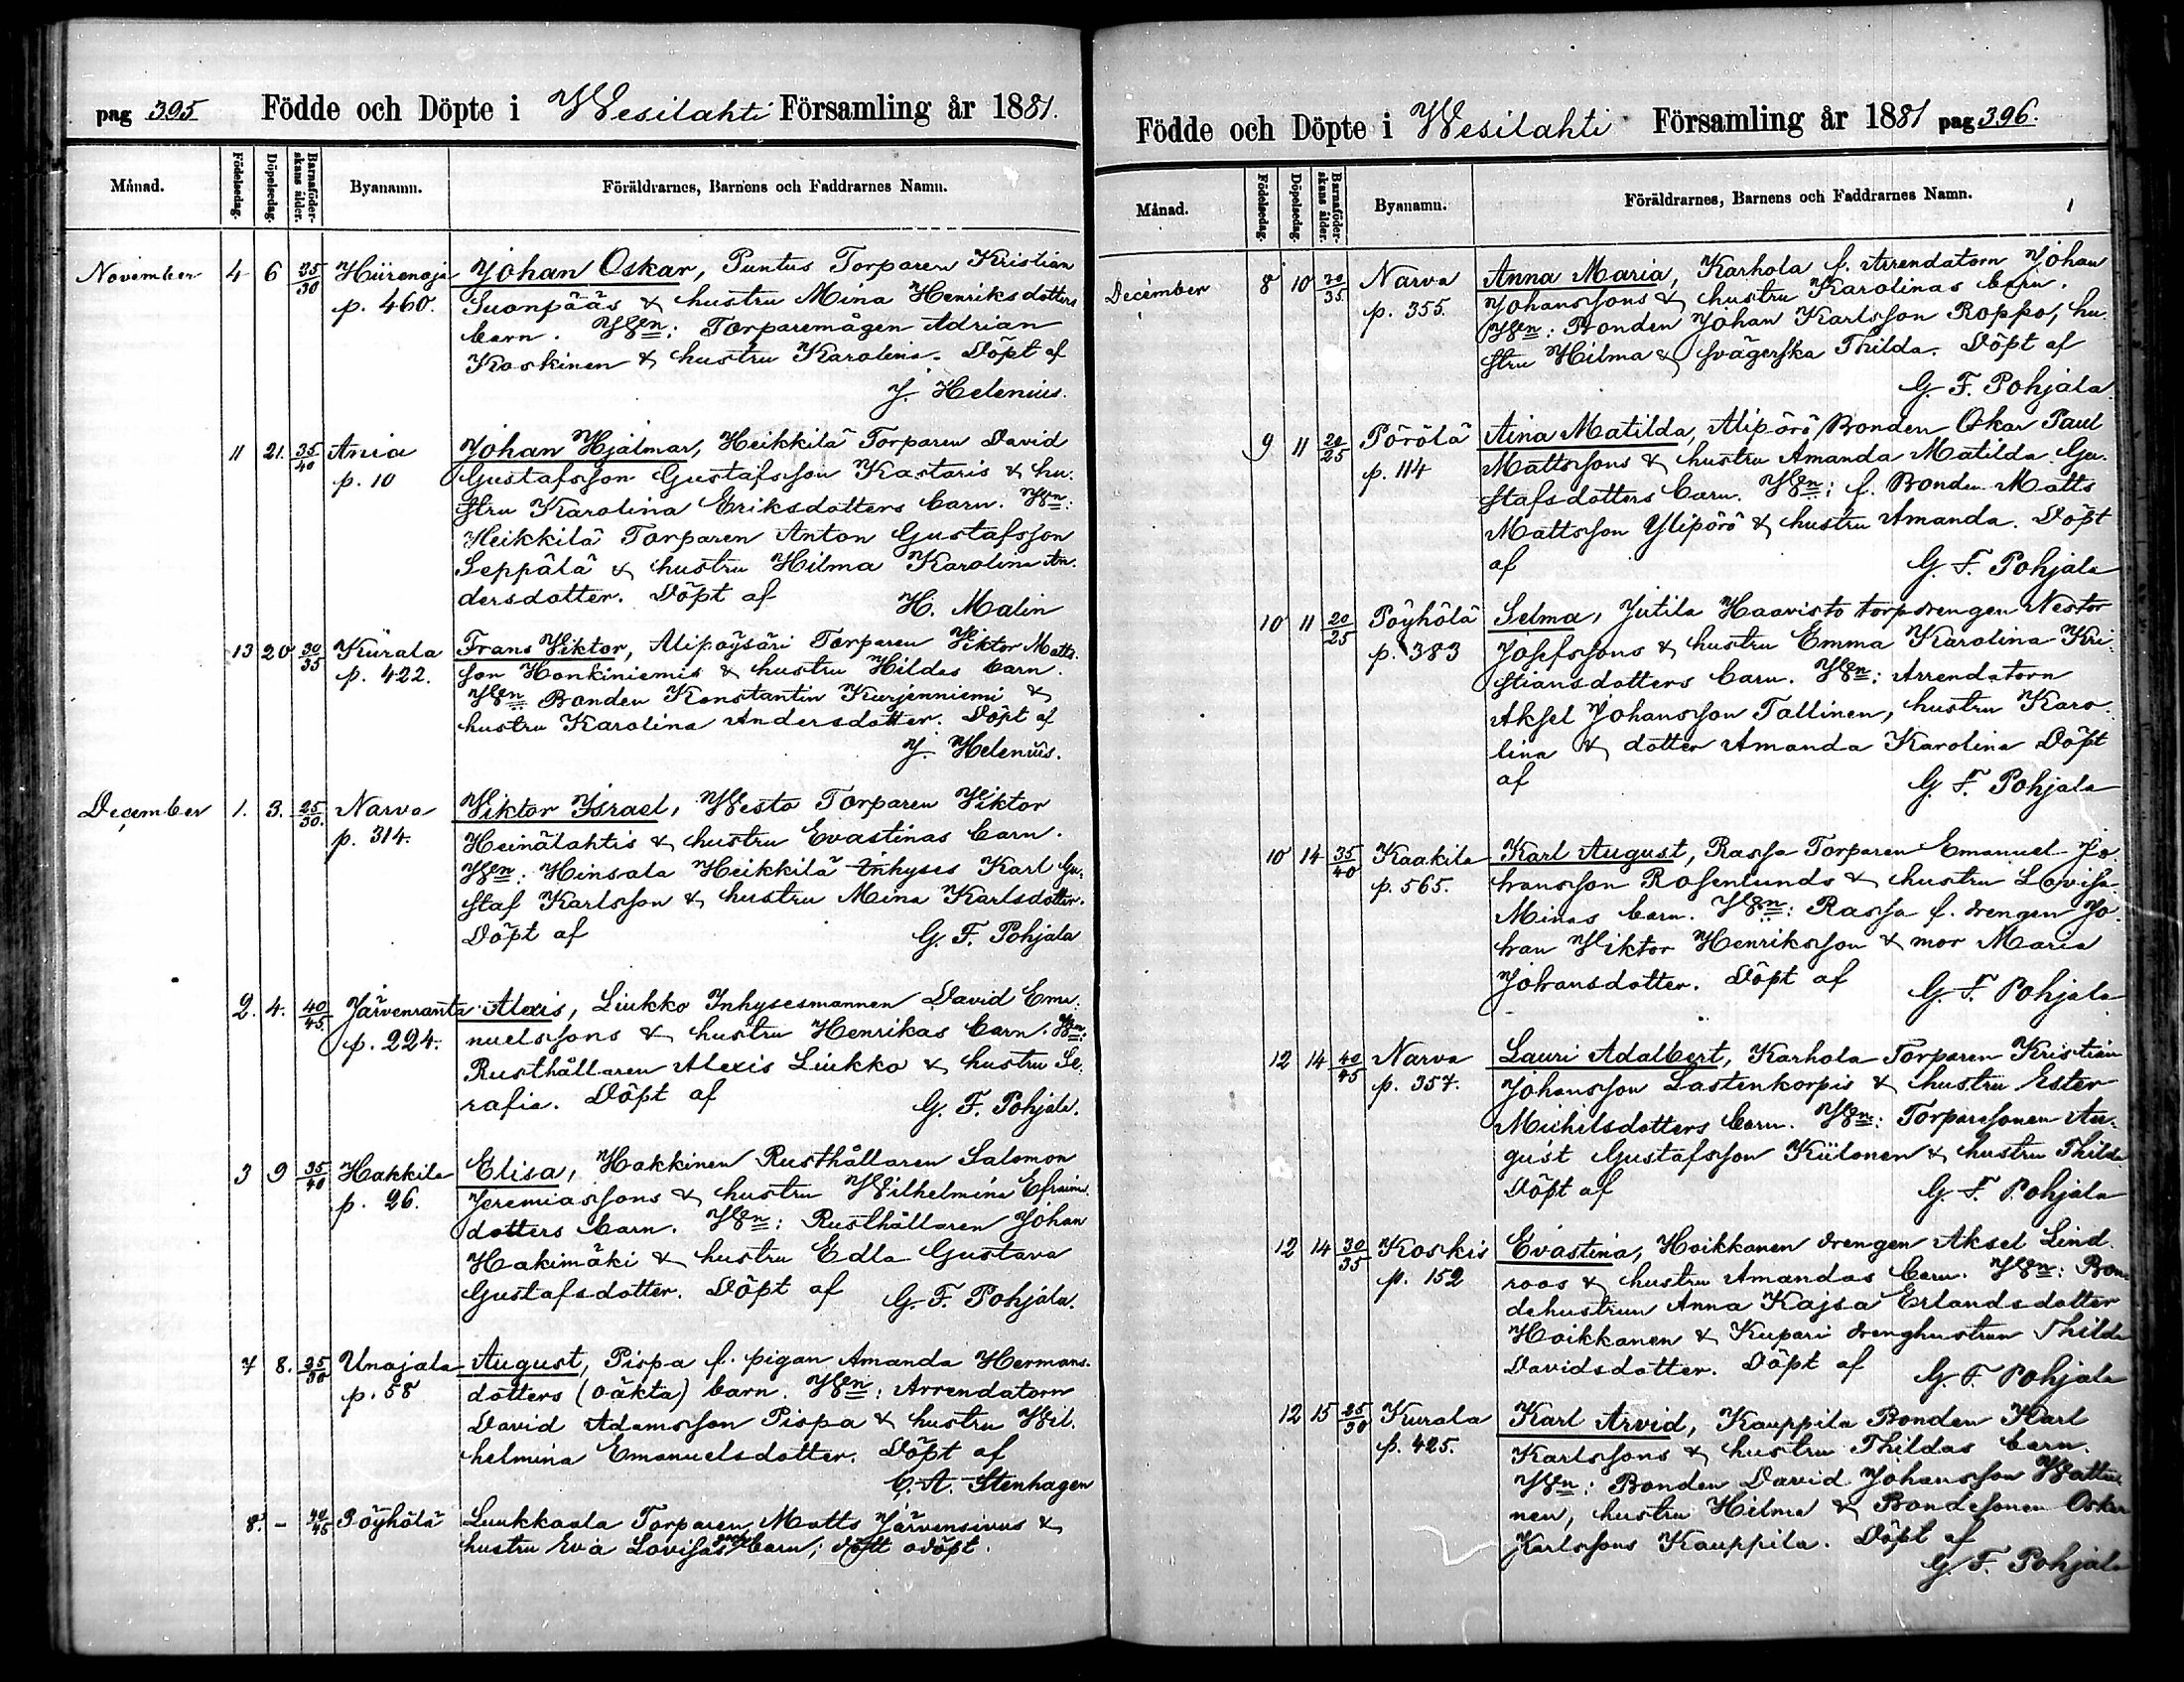 pag 395 Födde och Döpte i Wesilahti Församling år 1881.
Månad. Födelsedag. Döpelsedag. Barnaföderskans ålder. Byanamn. Föräldrarnes, Barnens och Faddrarnes Namn.
November 4 6 25/30 Hiirenoja Johan Oskar, Puntus Torparen Kristian
p. 460. Suonpääs & hustru Mina Henriksdotters
barn. Wn: Torparemågen Adrian
Koskinen & hustru Karolina. Döpt af
J. Helenius.
11 21. 35/40 Ania Johan Hjalmar, Heikkilä Torparen David
p. 10 Gustafsson Gustafsson Kastaris & hu-
stru Karolina Eriksdotters barn. Wn:
Heikkilä Torparen Anton Gustafsson
Seppälä & hustru Hilma Karolina An-
dersdotter. Döpt af H. Malin
13 20 30/35 Kurala Frans Viktor, Alipöysäri Torparen Viktor Matts-
p. 422. son Honkiniemis & hustru Hildas barn.
Wn: Bonden Konstantin Kurjenniemi &
hustru Karolina Andersdotter. Döpt af
J. Helenius.
December 1. 3. 25/30. Narva Viktor Israel, Westo Torparen Viktor
p. 314. Heinälahtis & hustru Evastinas barn.
Wn: Hinsala Heikkilä Inhyses Karl Gu-
staf Karlsson & hustru Mina Karlsdotter.
Döpt af G. F. Pohjala
2. 4. 40/45. Järvenranta Alexis, Liukko Inhysesmannen David Ema-
p. 224. nuelssons & hustru Henrikas barn. Wn:
Rusthållaren Alexis Liukko & hustru Se-
rafia. Döpt af G. F. Pohjala.
3 9 35/40 Hakkila Elisa, Hakkinen Rusthållaren Salomon
p. 26. Jeremiassons & hustru Wilhelmina Efraims
dotters barn. Wn: Rusthållaren Johan
Hakimäki & hustru Edla Gustava
Gustafsdotter. Döpt af G. F. Pohjala.
7 8. 25/30 Unajala August, Pispa f. pigan Amanda Hermans-
p. 58 dotters (oäkta) barn. Wn: Arrendatorn
David Adamsson Pispa & hustru Wil-
helmina Emanuelsdotter. Döpt af
C. A. Stenhagen
8. - 40/45 Pöyhölä Luukkaala Torparen Matts Järvensivus &
hustru Eva Lovisas barn; dött odöpt.
Födde och Döpte i Wesilahti Församling år 1881 pag 396.
Månad. Födelsedag. Döpelsedag. Barnaföderskans ålder. Byanamn. Föräldrarnes, Barnens och Faddrarnes Namn.
December 8 10 30/35. Narva Anna Maria, Karhola f. Arrendatorn Johan
p. 355. Johanssons & hustru Karolinas barn.
Wn: Bonden Johan Karlsson Roppo, hu-
stru Hilma & svägerska Thilda. Döpt af
G. F. Pohjala
9 11 20/25 Pörölä Aina Matilda, Alipörö Bonden Oskar Paul
p. 114 Mattssons & hustru Amanda Matilda Gu-
stafsdotters barn. Wn: f. Bonden Matts
Mattsson Ylipörö & hustru Amanda. Döpt
af G. F. Pohjala
10 11 20/25 Pöyhölä Selma, Jutila Haavisto torpdrengen Nestor
p. 383 Josefssons & hustru Emma Karolina Kri-
stiansdotters barn. Wn: Arrendatorn
Aksel Johansson Tallinen, hustru Karo-
lina & dotter Amanda Karolina Döpt
af G. F. Pohjala
10 14 35/40 Kaakila Karl August, Rassa Torparen Emanuel Jo-
p. 565. hansson Rosenlunds & hustru Lovisa
Minas barn. Wn: Rassa f. drengen Jo-
han Viktor Henriksson & mor Maria
Johansdotter. Döpt af G. F. Pohjala
12 14 40/45 Narva Lauri Adalbert, Karhola Torparen Kristian
p. 357. Johansson Lastenkorpis & hustru Ester
Michelsdotters barn. Wn: Torparesonen Au-
gust Gustafsson Kiilonen & hustru Thilda
Döpt af G. F. Pohjala
12 14 30/35 Koskis Evastina, Hoikkanen drengen Aksel Lind-
p. 152 roos & hustru Amandas barn. Wn: Bon-
dehustrun Anna Kajsa Erlandsdotter
Hoikkanen & Kupari drenghustrun Thilda
Davidsdotter. Döpt af G. F. Pohjala
12 15 25/30 Kurala Karl Arvid, Kauppila Bonden Karl
p. 425. Karlssons & hustru Thildas barn.
Wn: Bonden David Johansson Wattu-
nen, hustru Hilma & Bondesonen Oskar
Karlssons Kauppila. Döpt af
G. F. Pohjala